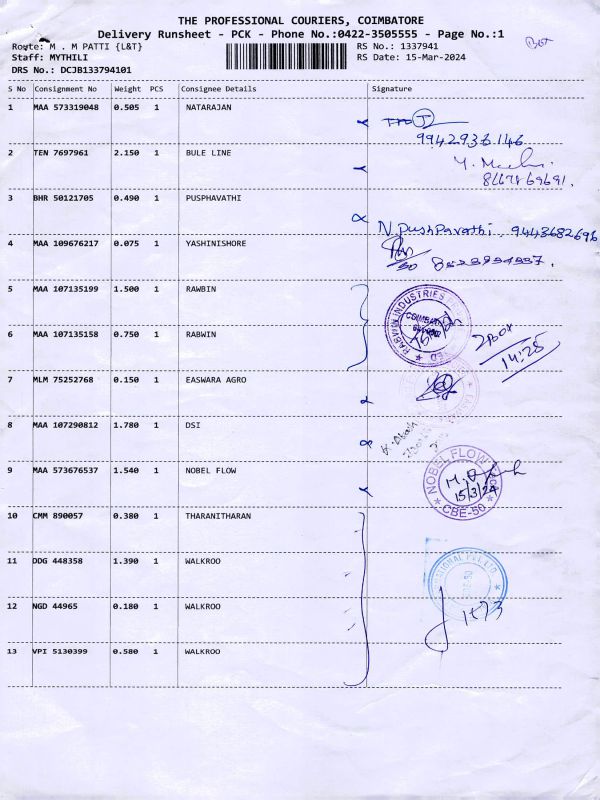 THE PROFESSIONAL COURIERS, COIMBATORE
Delivery Runsheet - PCK - Phone No.:0422-3505555 - Page No.:1
Route: M . M PATTI {L&T} RS No.: 1337941
Staff: MYTHILI RS Date: 15-Mar-2024
DRS No.: DCJB133794101
S No Consignment No Weight PCS Consignee Details Signature
1 MAA 573319048 0.505 1 NATARAJAN
9942936146
2 TEN 7697961 2.150 1 BULE LINE
8667869691.
3 BHR 50121705 0.490 1 PUSPHAVATHI
N. Pushpavathi. 9443682696
4 MAA 109676217 0.075 1 YASHINISHORE
5 MAA 107135199 1.500 1 RAWBIN
COIMBATORE
6 MAA 107135158 0.750 1 RABWIN
2 BOX
14:25
7 MLM 75252768 0.150 1 EASWARA AGRO
8 MAA 107290812 1.780 1 DSI
9 MAA 573676537 1.540 1 NOBEL FLOW
NOBEL FLOW
15/3/24
CBE-50
10 CMM 890057 0.380 1 THARANITHARAN
11 DDG 448358 1.390 1 WALKROO
12 NGD 44965 0.180 1 WALKROO
13 VPI 5130399 0.580 1 WALKROO